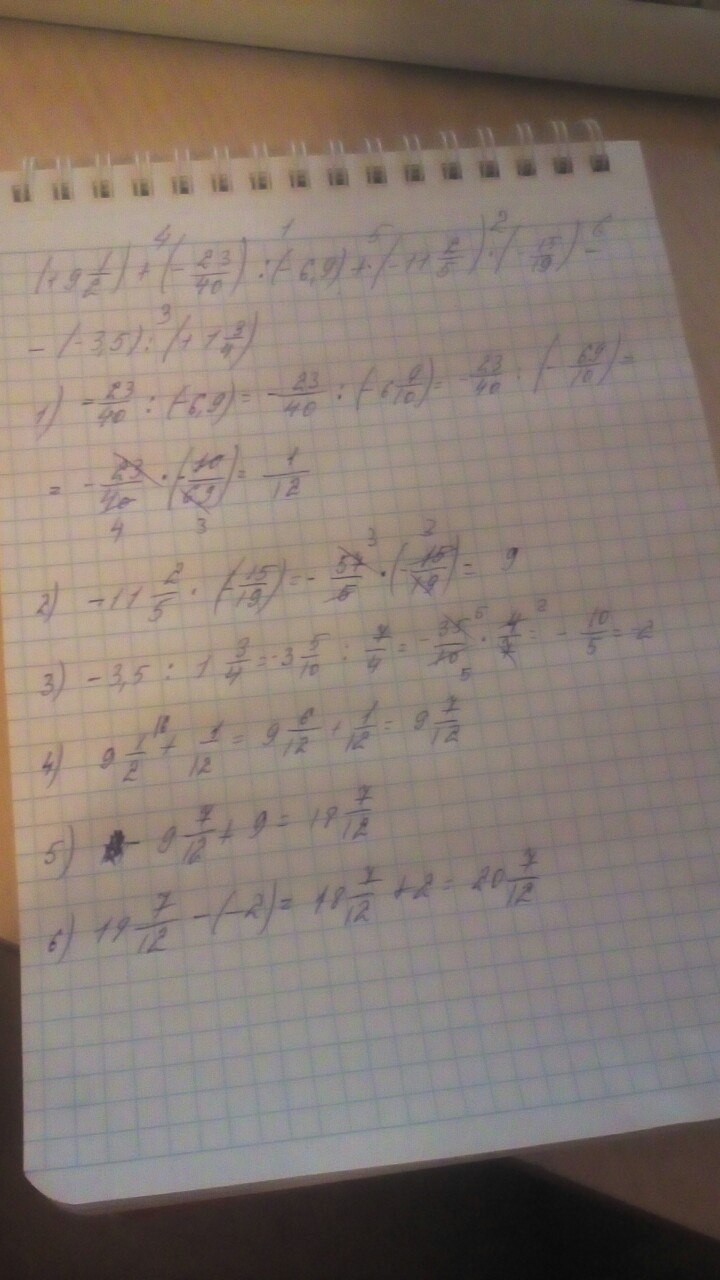 (+9 1/2) + (- 23/40) : (-6,9) + (-11 2/5) · (- 15/19) -
- (-3,5) : (+1 3/4)
1) - 23/40 : (-6,9) = - 23/40 : (-6 9/10) = - 23/40 : (- 69/10) =
= - 23/40 · (- 10/69) = 1/12
2) -11 2/5 · (- 15/19) = - 57/5 · (- 15/19) = 9
3) -3,5 : 1 3/4 = -3 5/10 : 7/4 = - 35/10 · 4/7 = - 10/5 = -2
4) 9 1/2 + 1/12 = 9 6/12 + 1/12 = 9 7/12
5) 9 7/12 + 9 = 18 7/12
6) 19 7/12 - (-2) = 18 7/12 + 2 = 20 7/12